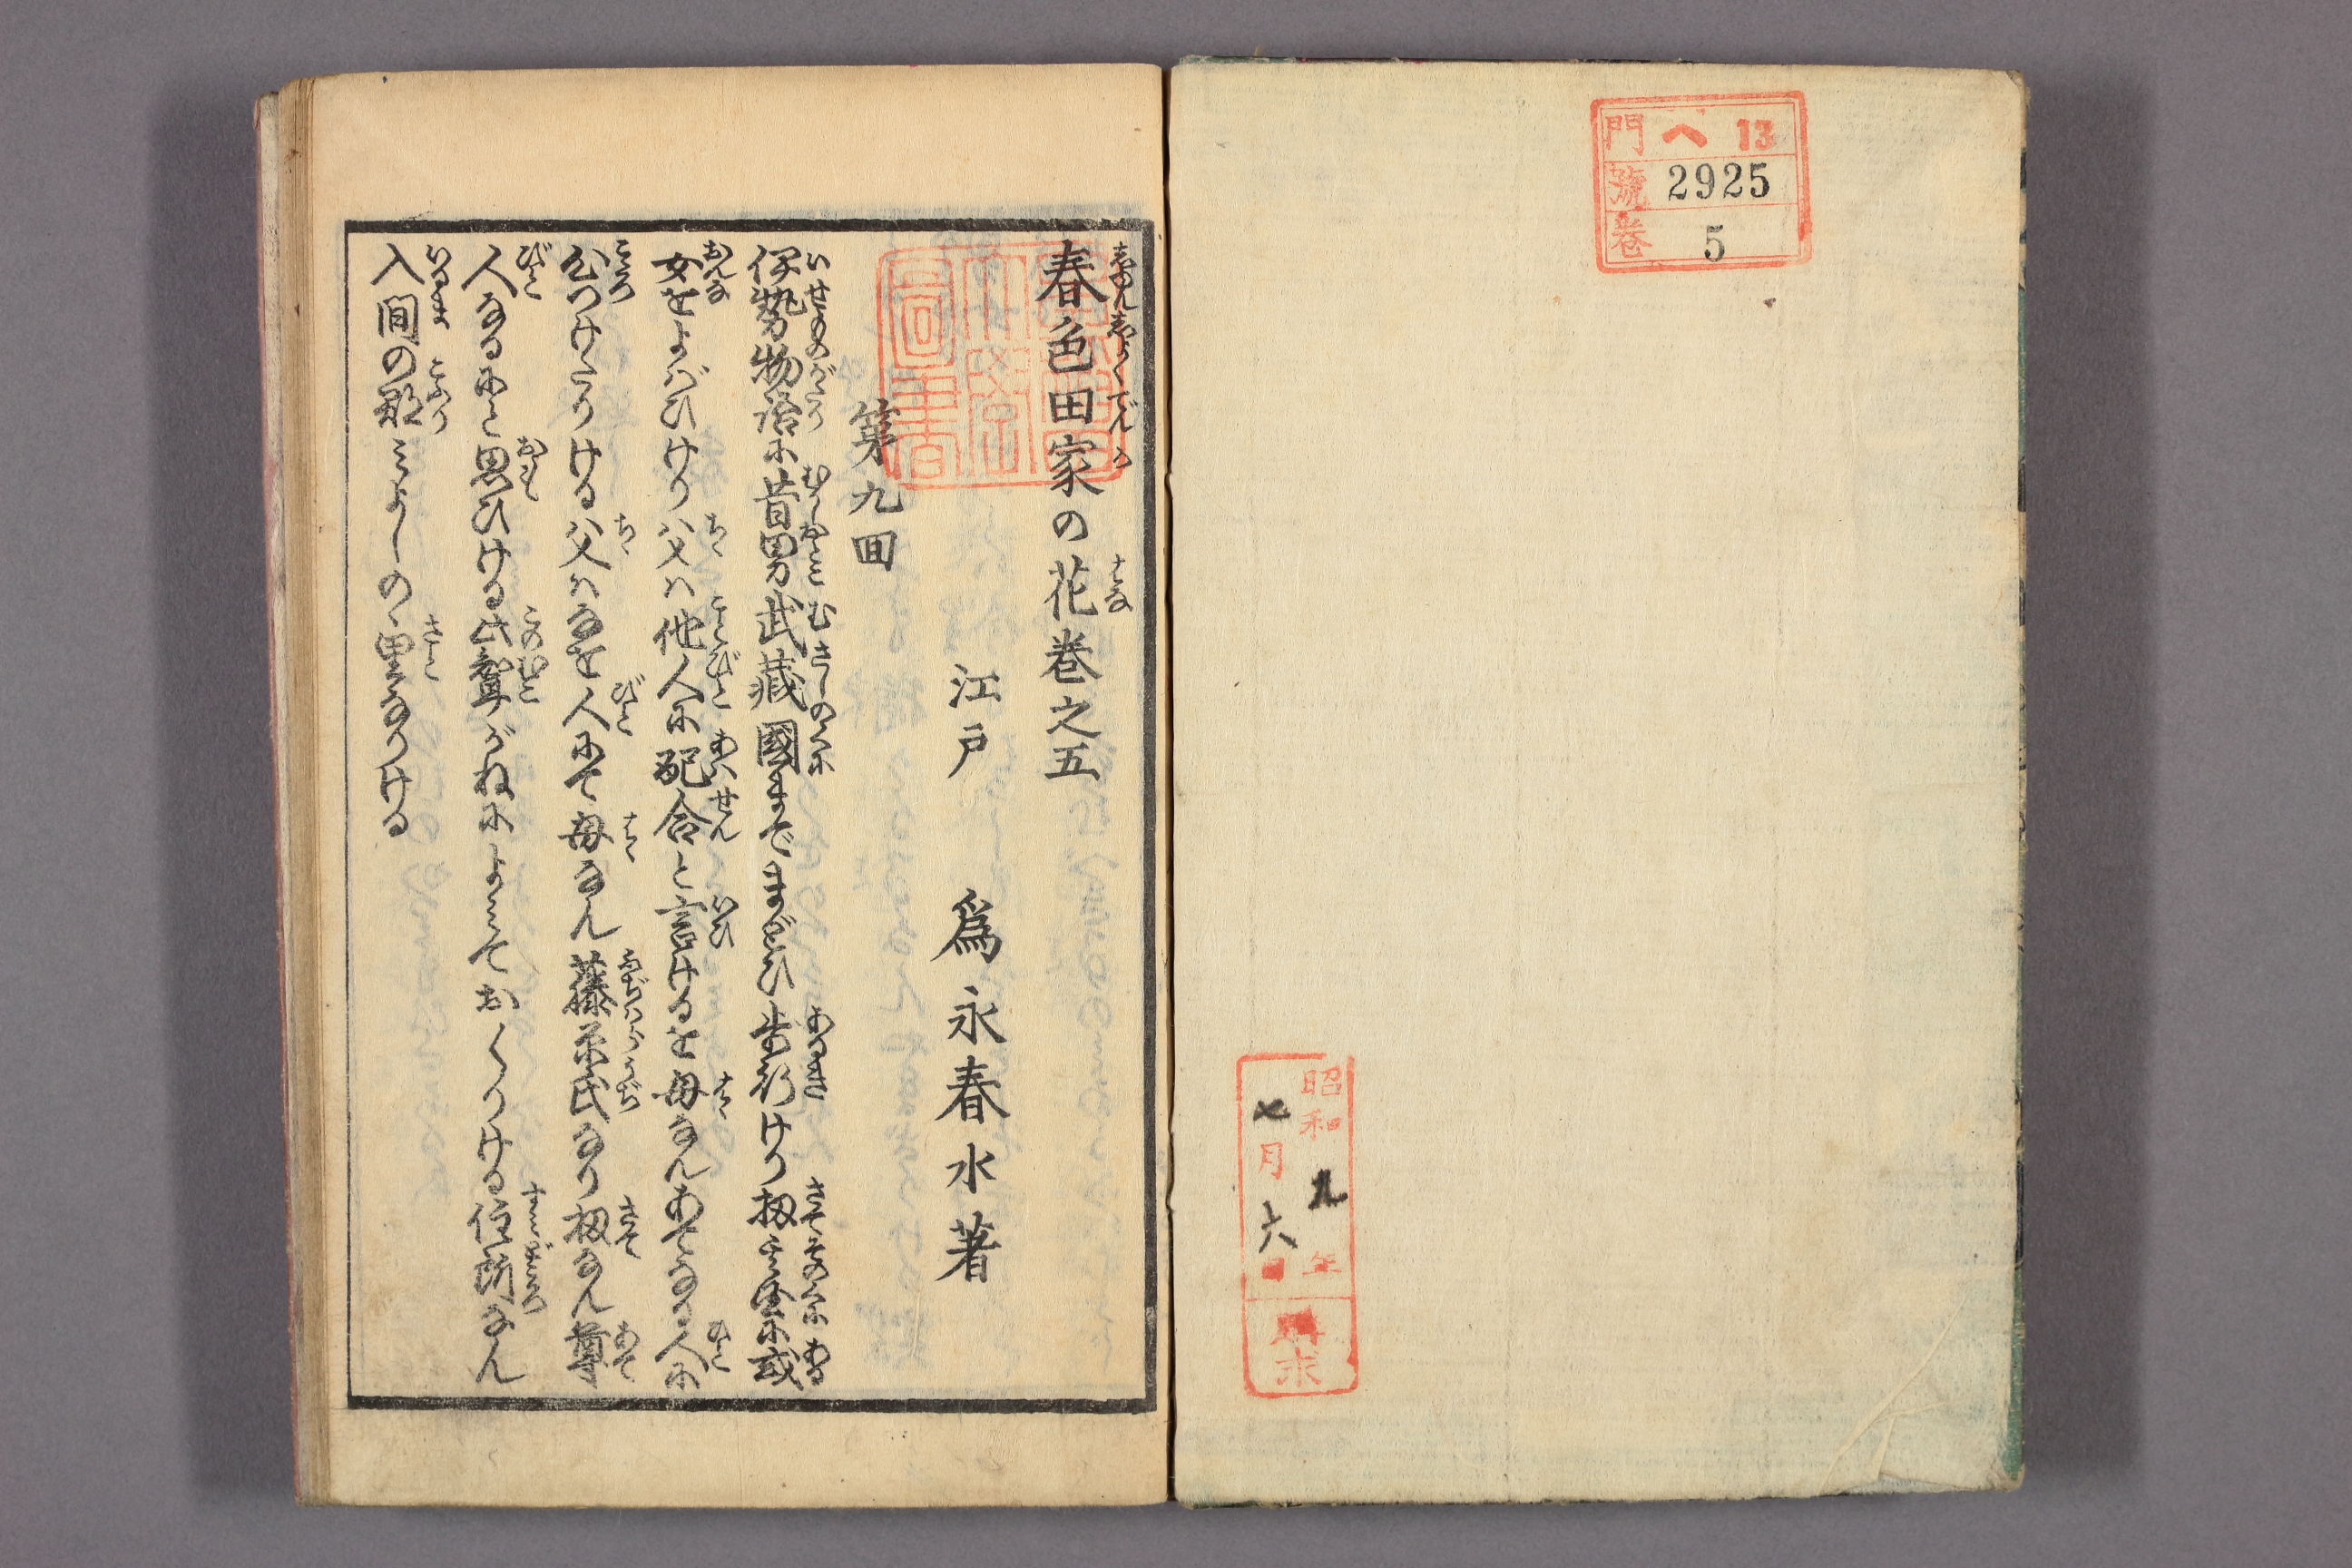 門 ヘ 13
號 2925
卷 5
昭和九年
七月六日
購求
春色田家の花巻之五
江戸 爲永春水著
第九回
伊勢物語に昔男武藏國までまどひ歩行けり扨其國に或
女をよばひけり父ハ他人に配合と言けるを母なんあてなる人に
心つけたりける父ハなを人にて母なん藤原氏なり扨なん尊
人なるにと思ひける此聟がねによみておくりける住所なん
入間の郡みよしのゝ里なりける